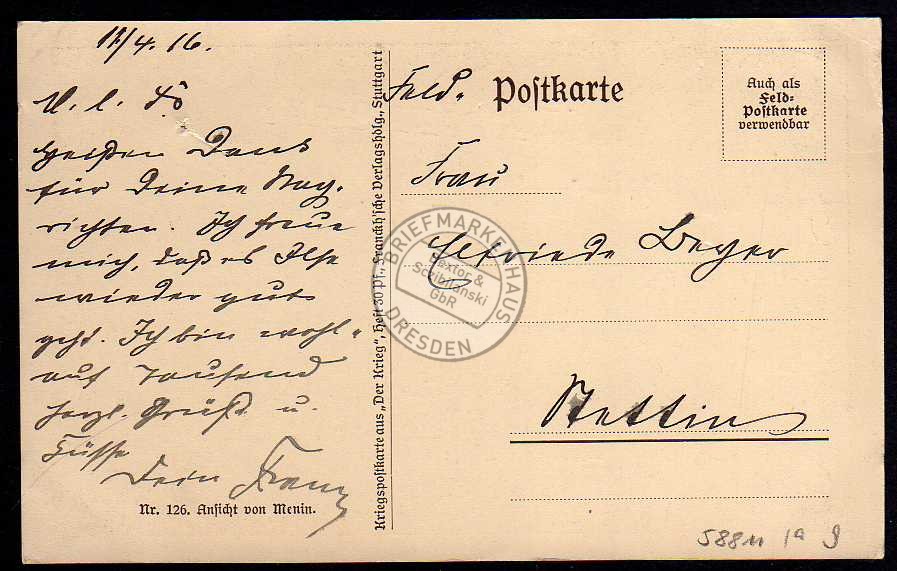 17/4.16.
M. l. Fr.
Heißen Dank
für Deine Nach-
richten. Ich freue
mich, daß es Ilse
wieder gut
geht. Ich bin wohl-
auf Tausend
herzl. Grüße u.
Küsse
Dein Franz
Nr. 126. Ansicht von Menin.
Kriegspostkarte aus „Der Krieg“, Heft 30 Pf., Franckh'sche Verlagshdlg., Stuttgart
Feld- Postkarte
Auch als
Feld-
Postkarte
verwendbar
Frau
Elfriede Beyer
Stettin
BRIEFMARKENHAUS
Hextor &
Scribilanski
GbR
DRESDEN